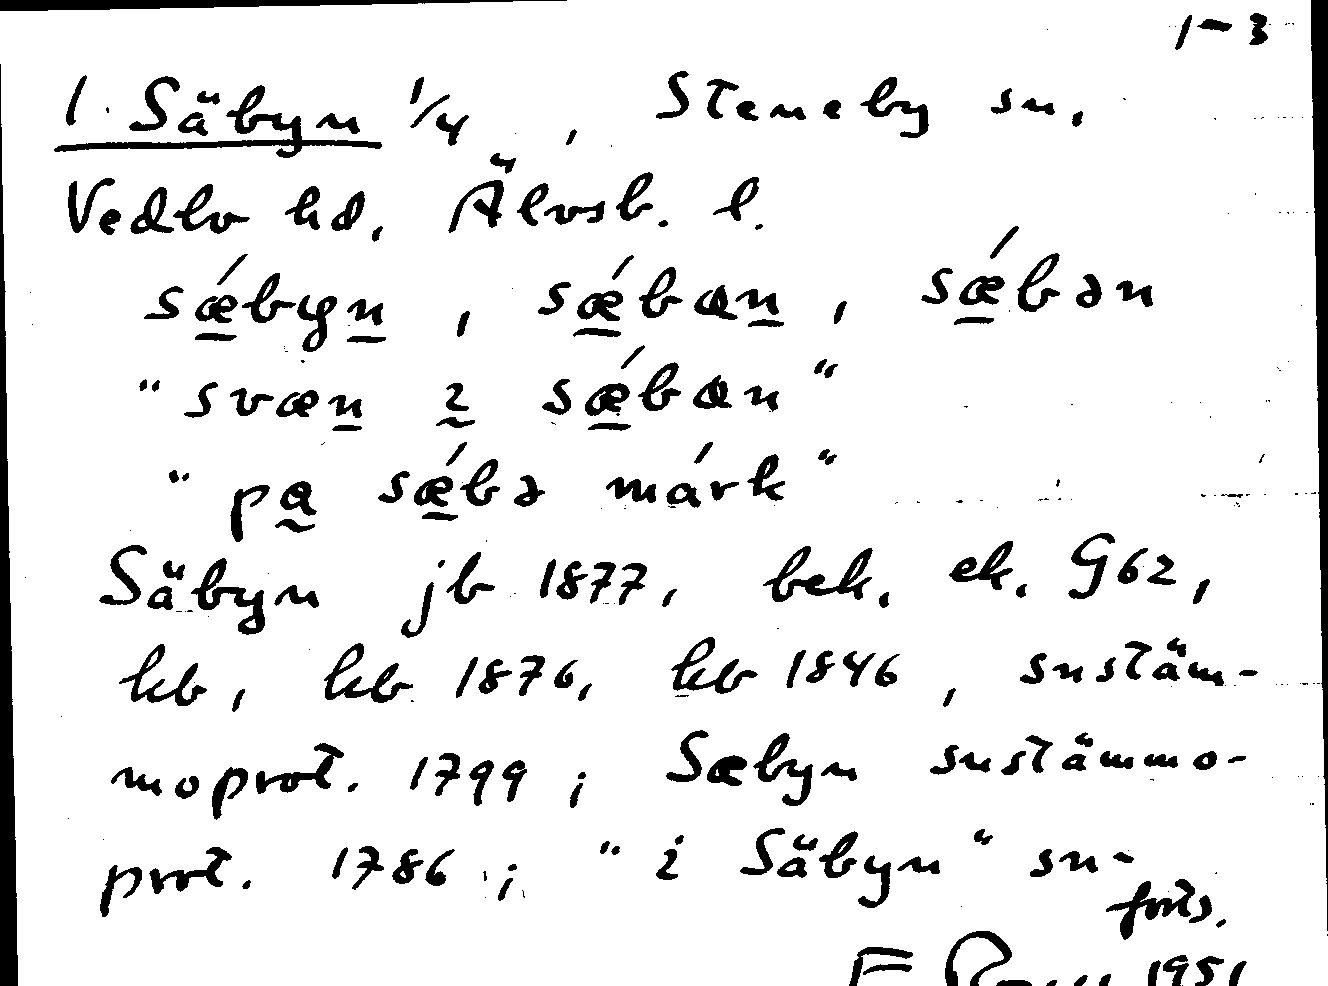 1-3
1. Säbyn 1/4, Steneby sn,
Vedbo hd, Älvsb. l.
sǽbyn, sǽban, sǽbən
"svæn i sǽban"
"pa sǽbə márk"
Säbyn jb 1877, bek. ek. G62,
kb, kb 1876, kb 1846, snstäm-
moprot. 1799; Sæbyn snstämmo-
prot. 1786; "i Säbyn" sn-
forts.
1951